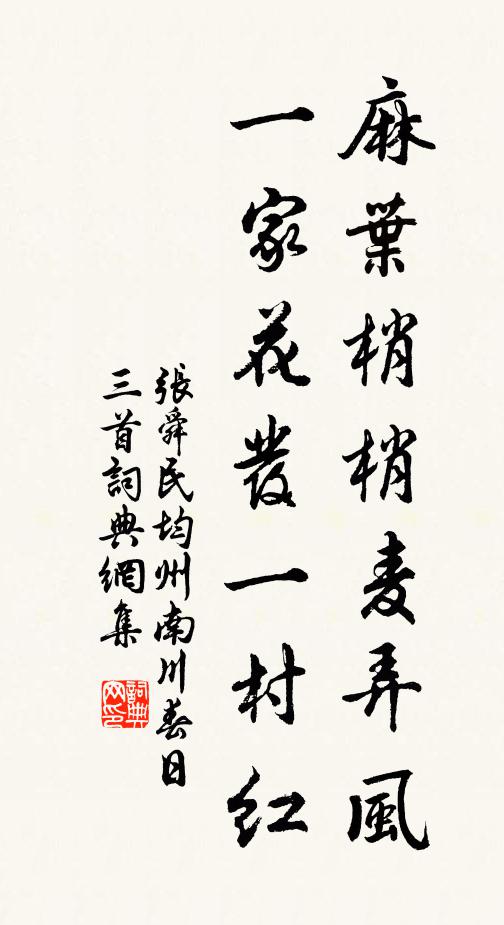 麻葉梢梢麦弄風
一家花發一村紅
張舜民均州南川春日
三首詞典網集
詞典
网印